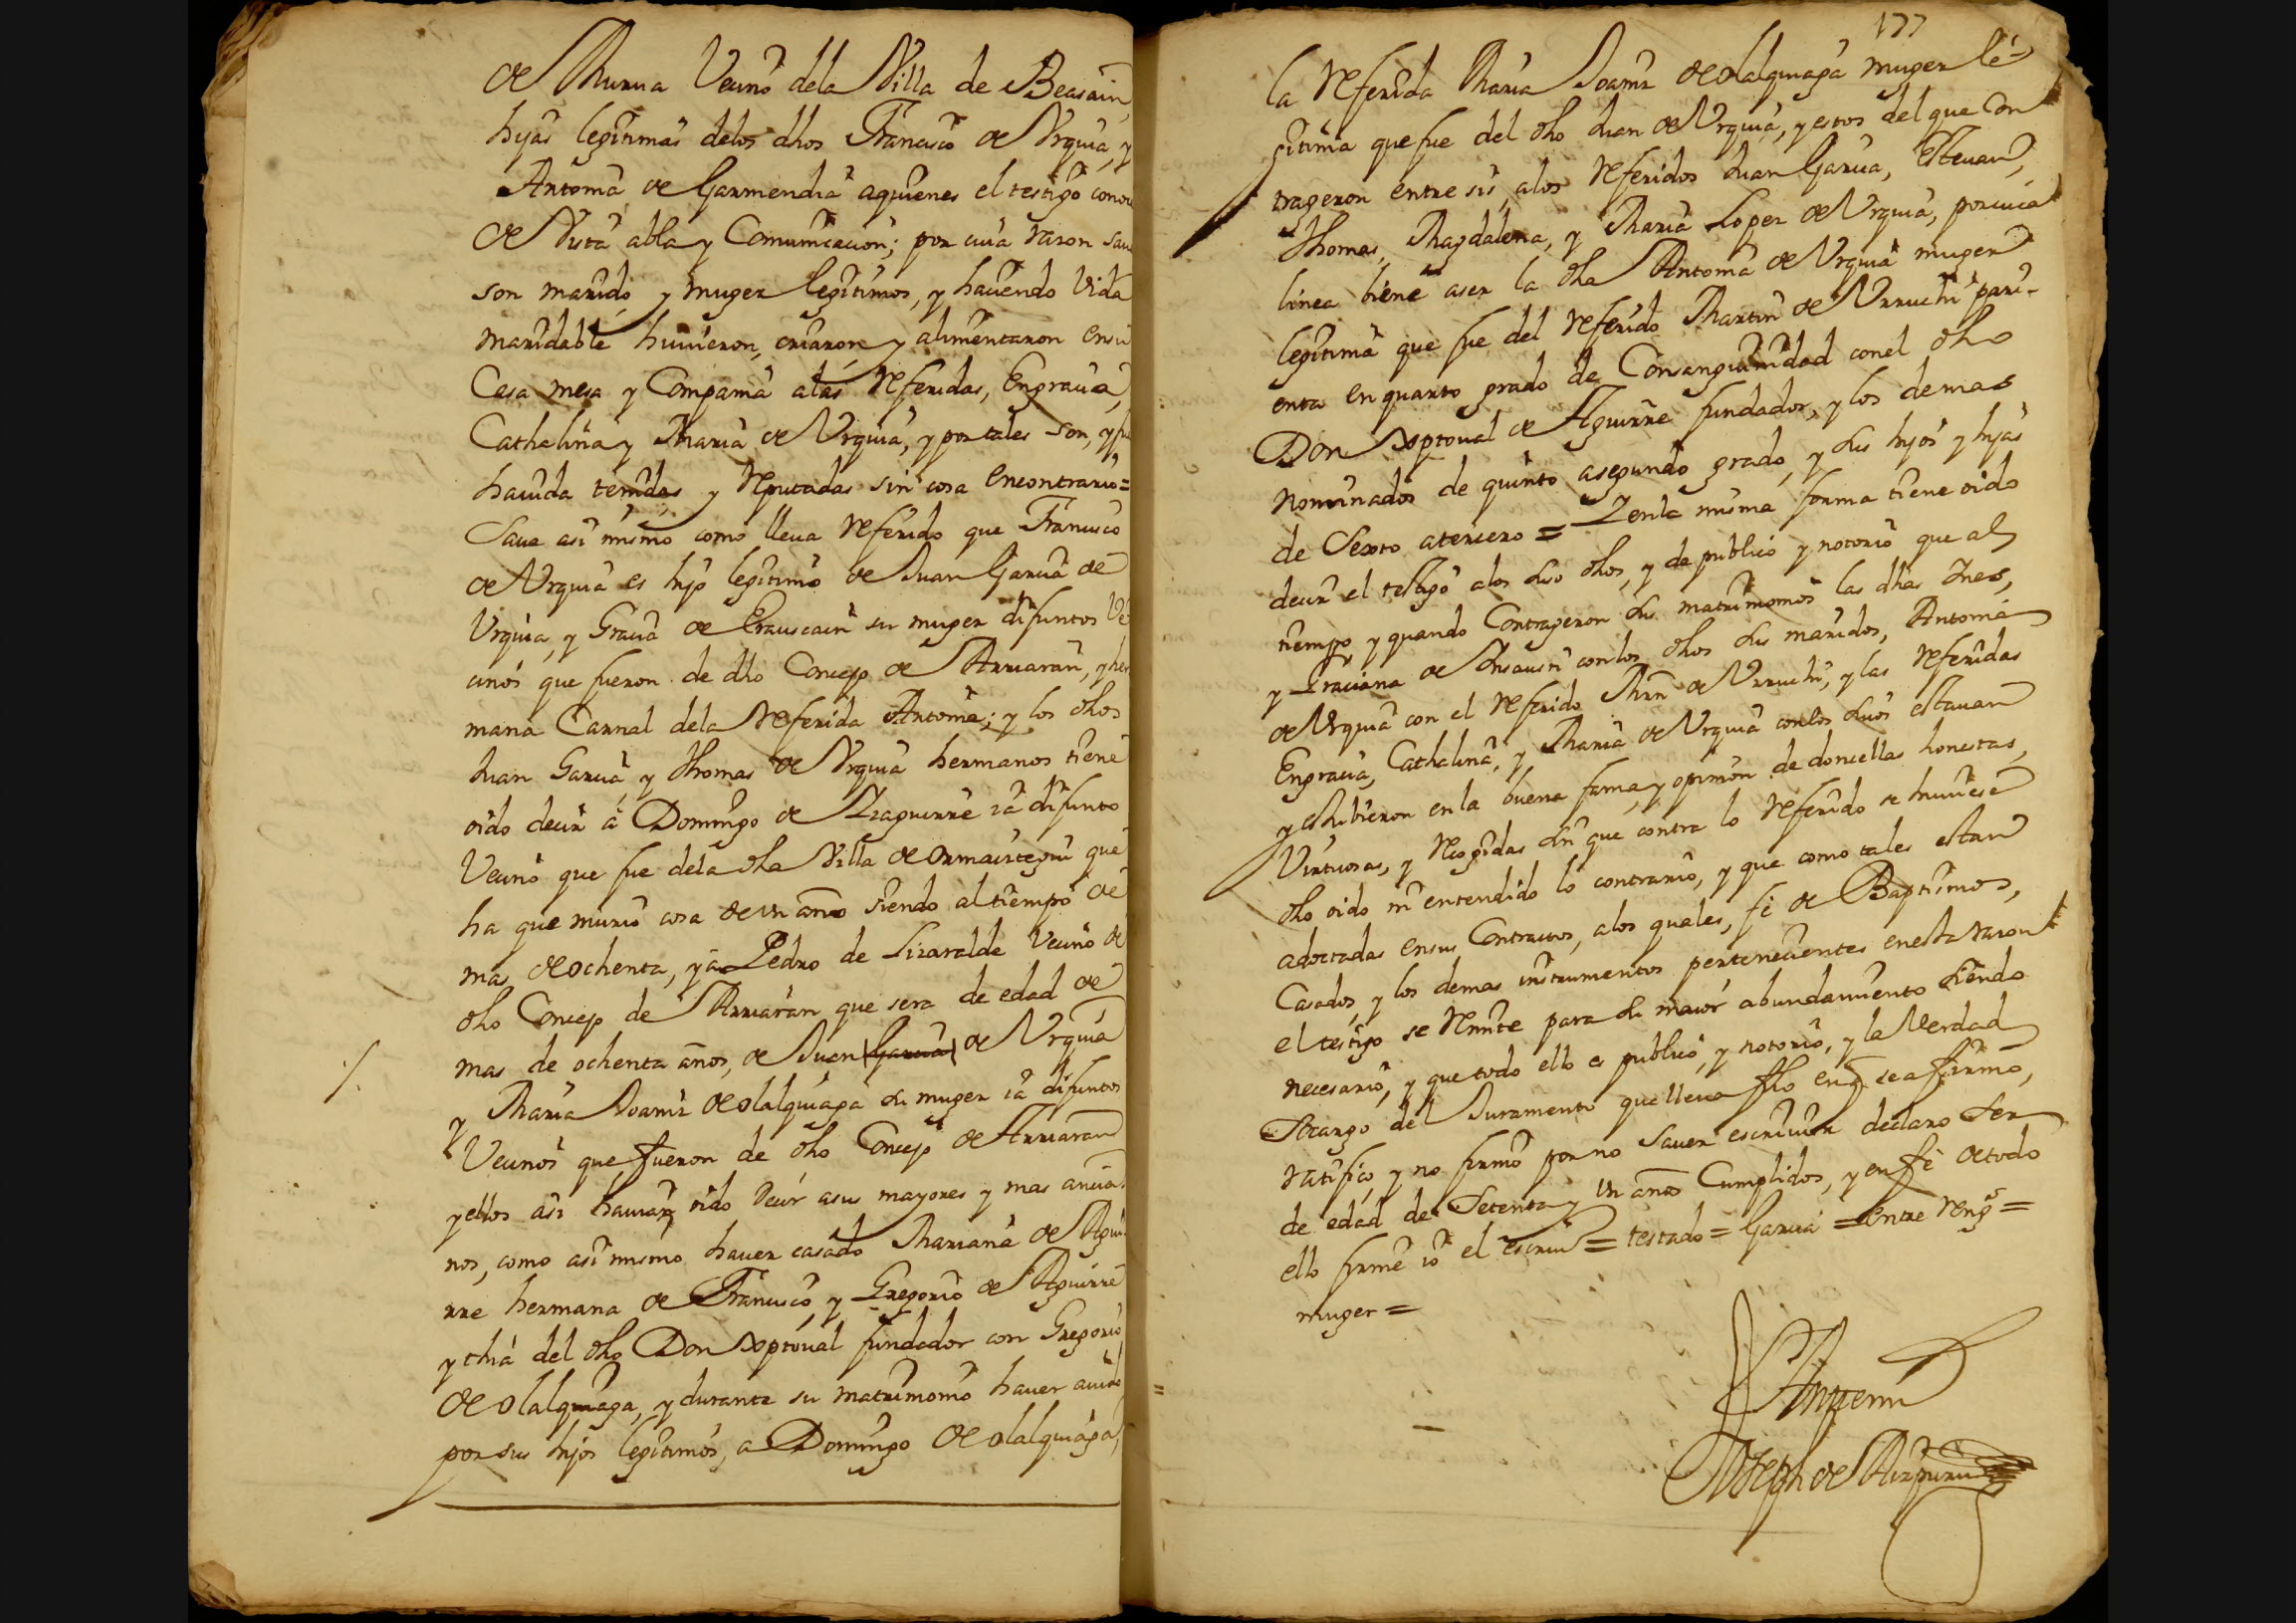 de Murua Vecino dela Villa de Beasain,
hijas legitimas delos dhos Francisco de Vrquia, y
Antonia de Garmendia aquienes el testigo conoce
de Vista abla y Comunicacion; por cuia razon saue
son marido, y muger legitimos, y haciendo Vida
maridable huuieron, criaron y alimentaron ensu
Casa mesa y Compañia alas referidas, Engracia,
Cathalina y Maria de Vrquia, y por tales son, y
hauida tenidas y reputadas sin cosa encontrario=
Saue asi mismo como lleua referido que Francisco
de Vrquia es hijo legitimo de Juan Garcia de
Vrquia, y Gracia de Erauscain su muger difuntos Ve
cinos que fueron de dho Concejo de Arriaran, y her
mana Carnal dela referida Antonia; y los dhos
Juan Garcia, y Thomas de Vrquia hermanos tiene
oido decir à Domingo de Izaguirre ia difunto
Vecino que fue dela dha Villa de Ormaiztegui que
ha que murio cosa de vn año siendo altiempo de
mas de ochenta, y à Pedro de Lizaralde Vecino de
dho Concejo de Arriaran que sera de edad de
mas de ochenta años, de Juan Garcia de Vrquia
y Maria Joaniz de olalquiaga su muger ia difuntos
Vecinos que fueron de dho Concejo de Arriaran
y ellos asi hauian oido decir asus mayores y mas ancia
nos, como asi mismo hauer casado Mariana de Agui
rre hermana de Francisco, y Gregorio de Aguirre
y thia del dho Don Xptoual fundador con Gregorio
de olalquiaga, y durante su matrimonio hauer auido
por sus hijos legitimos, a Domingo de olalquiaga,
177
la referida Maria Joaniz de olalquiaga muger le=
gitima que fue del dho Juan de Vrquia, y estos del que con
trageron entre si, alos referidos Juan Garcia, Esteuan,
Thomas, Magdalena, y Maria Lopez de Vrquia, por cuia
linea biene aser la dha Antonia de Vrquia muger
legitima que fue del referido Martin de Vrruchi pari-
enta en quarto grado de Consanguinidad conel dho
Don Xptoual de Aguirre fundador, y los demas
nominados de quinto asegundo grado, y sus hijos y hijas
de Sexto atercero = Y enla misma forma tiene oido
decir el testigo alos suso dhos, y de publico y notorio que al
tiempo y quando Contrageron sus matrimonios las dhas Ines,
y Graciana de Insausti conlos dhos sus maridos, Antonia
de Vrquia con el referido Mrn de Vrruchi, y las referidas
Engracia, Cathalina, y Maria de Vrquia conlos suios estauan
y estubieron enla buena fama y opinion de doncellas honestas,
Virtuosas, y recogidas sin que contra lo referido se huuiese
dho oido ni entendido lo contrario, y que como tales estan
adoctadas ensus Contractos, alos quales, fe de Baptismos,
Casados, y los demas instrumentos pertenecientes enesta razon
el testigo se remite para su maior abundamiento siendo
necesario, y que todo ello es publico, y notorio, y la Verdad
Socargo del Juramento que lleua fho en q se afirmo,
ratifico, y no firmo por no sauer escriuir declaro ser
de edad de Setenta y vn años Cumplidos, y enfe de todo
ello firme io el escriu = testado = Garcia = entre reng =
muger =
Ante mi
Joseph de Aizpuru